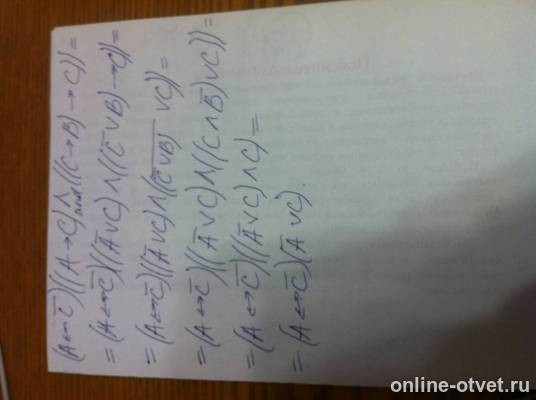 (A↔C̅)((A→C)∧((C→B)→C))=
=(A↔C̅)((A̅∨C)∧((C̅∨B)→C))=
=(A↔C̅)((A̅∨C)∧(¬(C̅∨B)∨C))=
=(A↔C̅)((A̅∨C)∧((C∧B̅)∨C))=
=(A↔C̅)((A̅∨C)∧C)=
=(A↔C̅)(A̅∨C).
online-otvet.ru